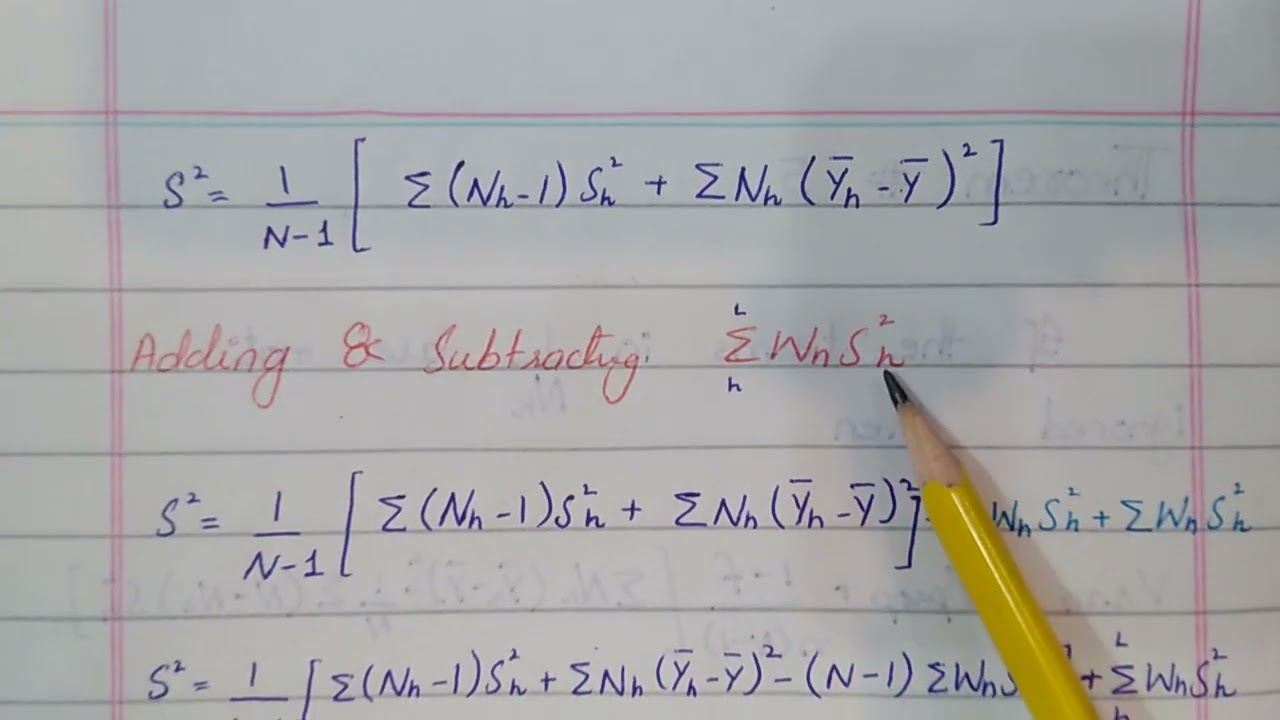 S² = 1/(N-1) [ Σ(Nh-1)Sh² + ΣNh(Ȳh-Ȳ)² ]
Adding & Subtractng. Σ_h^L WhSh²
S² = 1/(N-1) [ Σ(Nh-1)Sh² + ΣNh(Ȳh-Ȳ)² ] WhSh² + ΣWhSh²
S² = 1 [ Σ(Nh-1)Sh² + ΣNh(Ȳh-Ȳ)² - (N-1) ΣWhS + Σ_h^L WhSh²